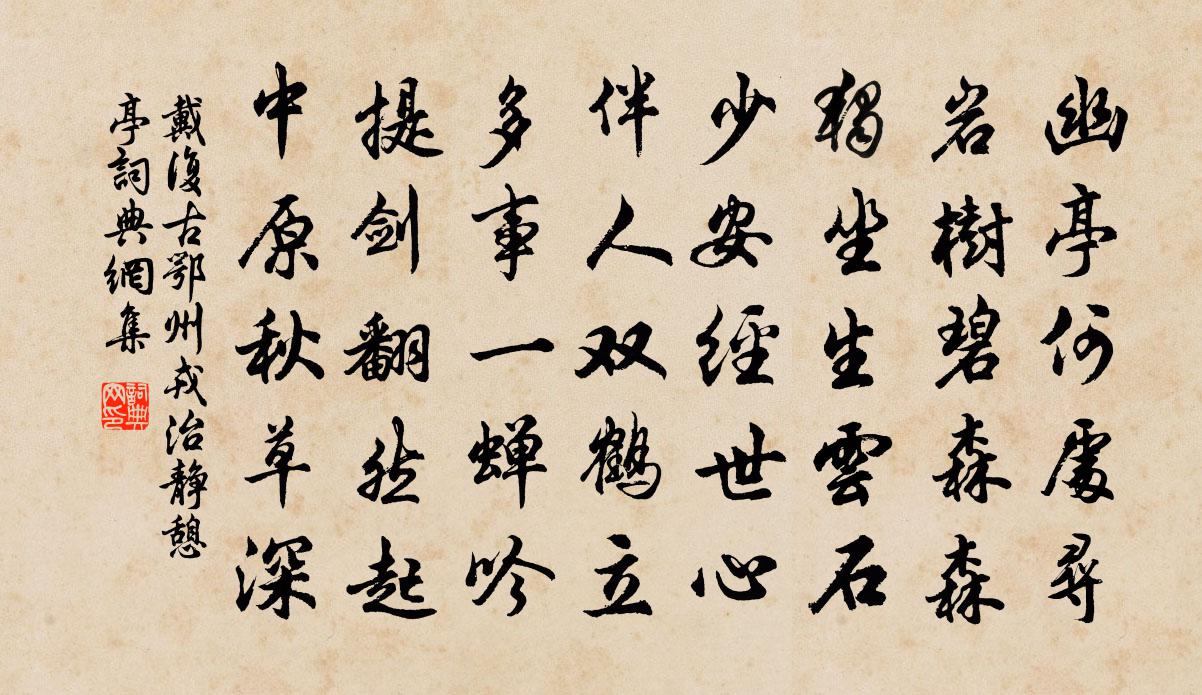 幽亭何處尋
岩樹碧森森
獨坐生雲石
少安經世心
伴人双鹤立
多事一蝉吟
提剑翻然起
中原秋草深
戴復古鄂州戎治静憩
亭詞典網集
詞典
网印